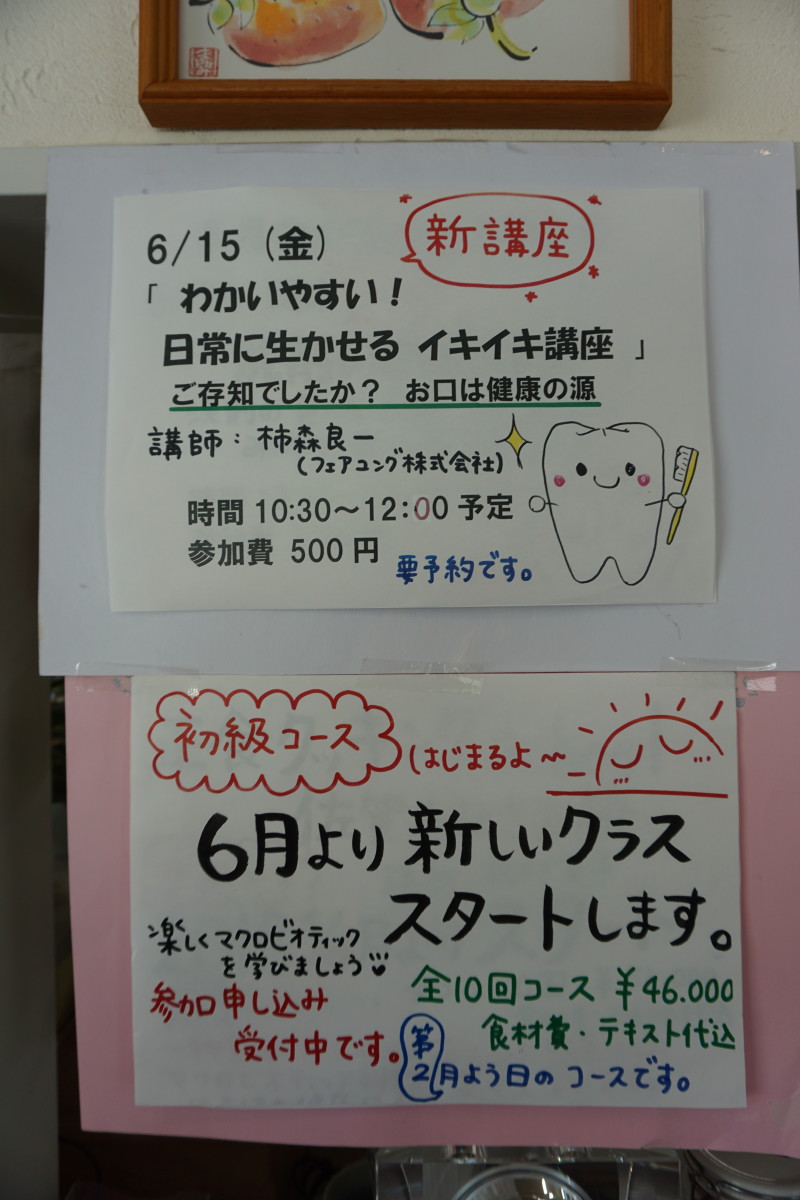 6/15（金）
新講座
「わかいやすい！
日常に生かせる イキイキ講座 」
ご存知でしたか？ お口は健康の源
講師：柿森良一
（フェアユング株式会社）
時間 10:30～12:00 予定
参加費 500 円
要予約です。
初級コース
はじまるよ～
6月より 新しいクラス
スタートします。
楽しくマクロビオティック
を学びましょう
参加申し込み
受付中です。
全10回コース ￥46.000
食材費・テキスト代込
第2月よう日の コースです。